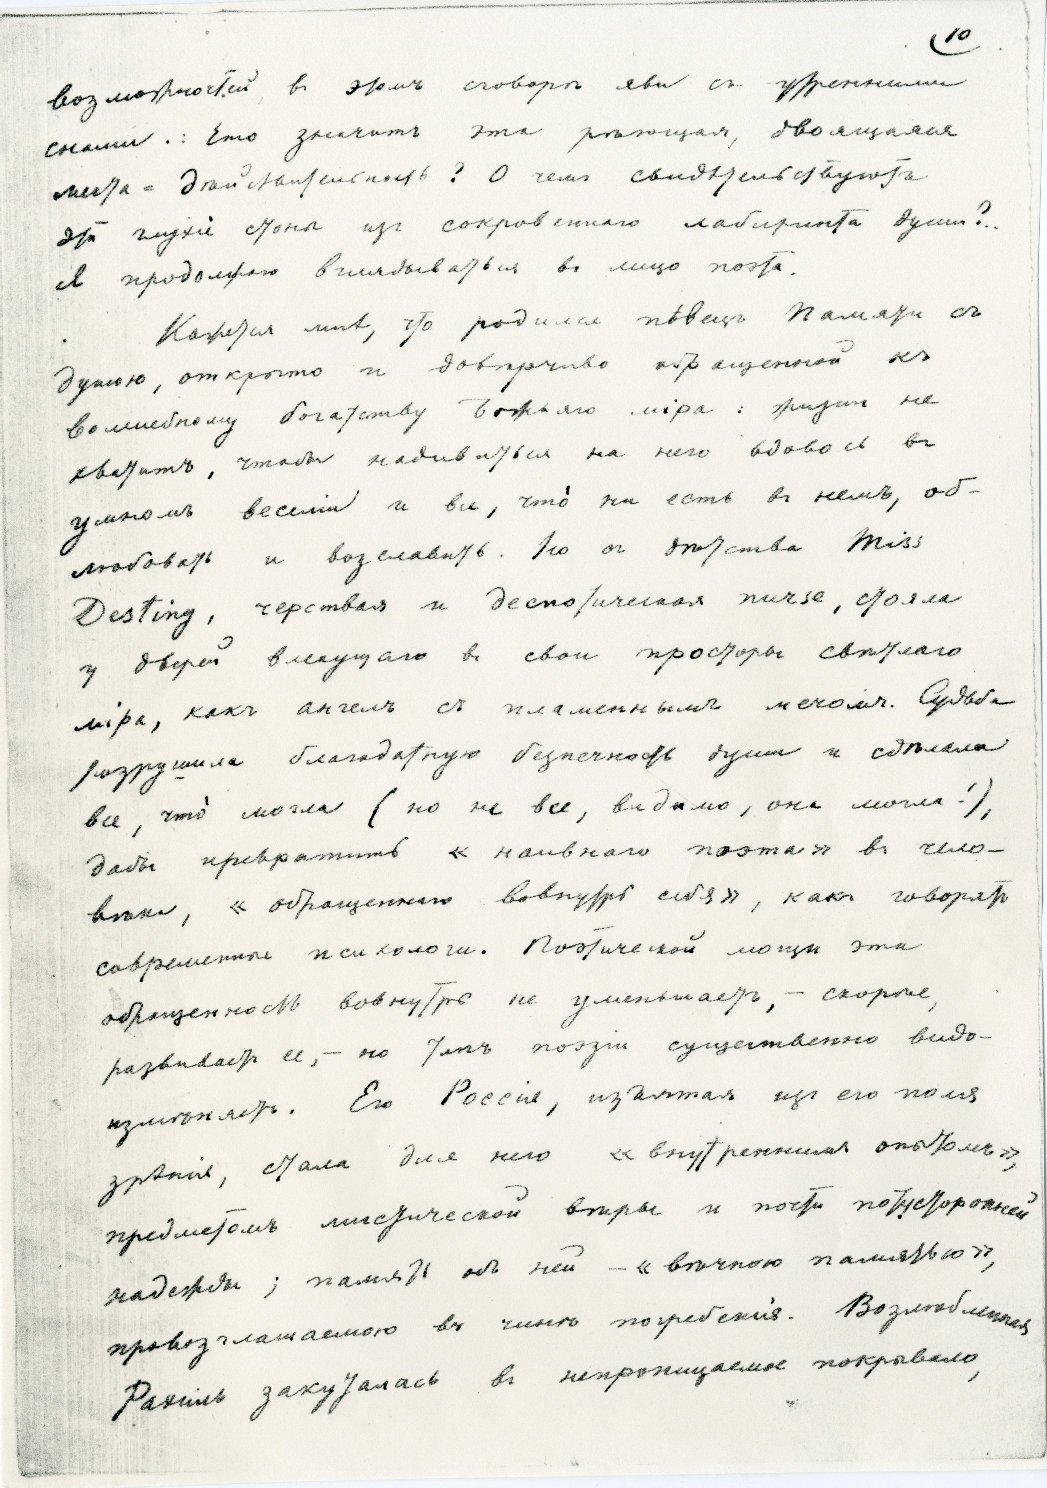 10
возможностей, въ этомъ сговорѣ яви съ утренними
снами.: Что значитъ эта рѣющая, двоящаяся
мечта = дѣйствительность? О чемъ свидѣтельствуютъ
эти глухіе стоны изъ сокровеннаго лабиринта души?..
Я продолжаю вглядываться въ лицо поэта.
Кажется мнѣ, что родился пѣвецъ Памяти съ
душою, открыто и довѣрчиво обращенной къ
волшебному богатству Божьяго міра: жизни не
хватитъ, чтобы надивиться на него вдоволь въ
умномъ веселіи и все, что̀ ни есть въ немъ, об-
любовать и возславить. Но съ дѣтства Miss
Destiny, черствая и деспотическая nurse, стояла
у дверей влекущаго въ свои просторы свѣтлаго
міра, какъ ангелъ съ пламеннымъ мечомъ. Судьба
разрушила благодатную безпечность души и сдѣлала
все, что̀ могла (но не все, видимо, она могла!),
дабы превратить «наивнаго поэта» въ чело-
вѣка, «обращеннаго вовнутрь себя», какъ говорятъ
современные психологи. Поэтической мощи эта
обращенность вовнутрь не уменьшаетъ, – скорѣе,
развиваетъ ее, – но типъ поэзіи существенно видо-
измѣняетъ. Его Россія, изъятая изъ его поля
зрѣнія, стала для него «внутреннимъ опытомъ»,
предметомъ мистической вѣры и почти потусторонней
надежды; память объ ней – «вѣчною памятью»,
провозглашаемою въ чинѣ погребенія. Возлюбленная
Рахиль закуталась въ непроницаемое покрывало,